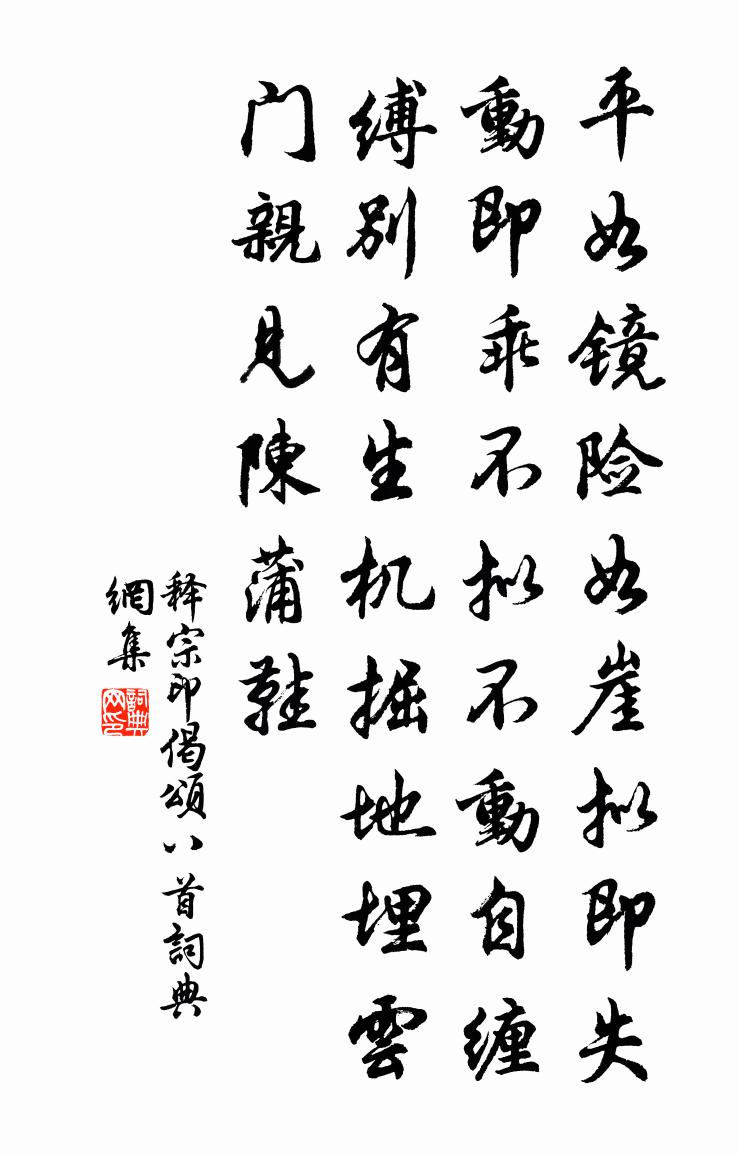 平如镜险如崖拟即失
動即乖不拟不動自缠
缚别有生机掘地埋雲
门親見陳蒲鞋
释宗印偈頌八首詞典
網集
詞典
网印